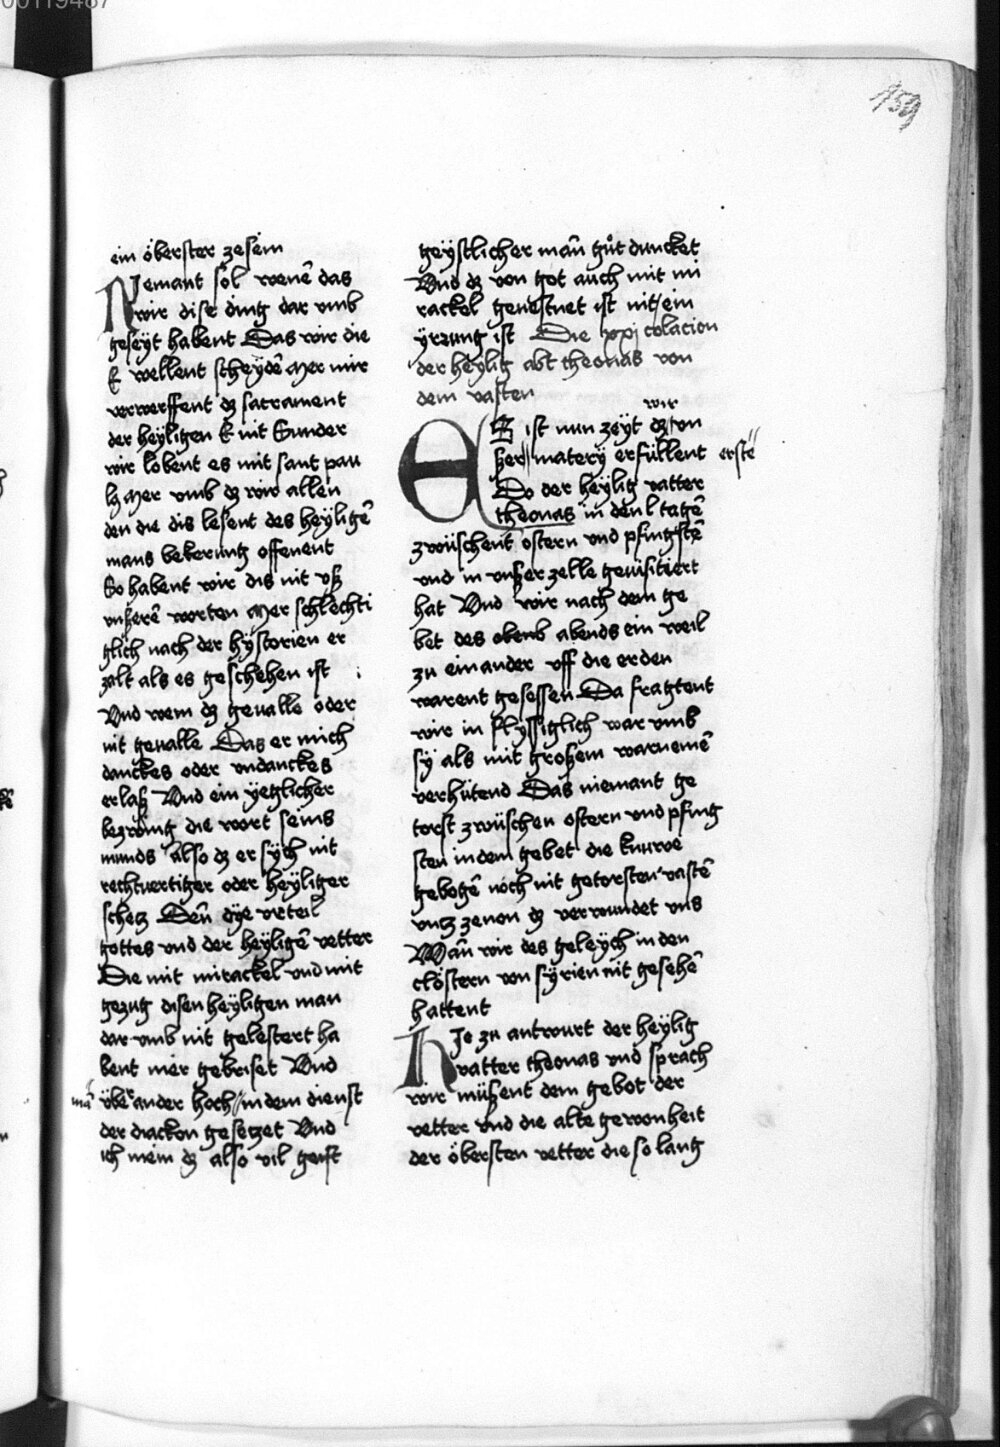 00119487
159
ein öberster ze sein
Niemant sol wenē das
wir dise ding dar vmb
geseyt habent Das wir die
E wellent scheÿdē Mer wir
verwerffent dz sacrament
der heÿligen E nit Sunder
wir lobent es mit sant pau
lq Mer vmb dz wir allen
den die dis lesent des heÿligē
mans bekerung offenent
So habent wir dis nit vß
vnßerē worten Mer schlechti
glich nach der hÿstorien er
zalt als es geschehen ist
Vnd wem dz geualle oder
nit geualle Das er mich
danckes oder vndanckes
erlaß Vnd ein ÿeglicher
bezwing die wort seins
munds also dz er sÿch nit
rechtuertiger oder heÿliger
schetz Den̄ dÿe vrteil
gottes vnd der heÿligē vetter
Die mit mirackel vnd mit
gezug disen heÿligen man
dar vmb nit gelestert ha
bent mer gebriset Vnd
über ander hoch in dem dienst
der diackon gesetzet Vnd
ich mein dz also vil geist
geÿstlicher man̄ gůt duncket
Vnd dz von got auch mit mi
rackel geuestnet ist nit ein
ÿrrung ist Die xxi colacion
der heÿlig abt theonas von
dem vasten
wir
ES ist nun zeyt dz vn
ßer materÿ erfüllent erstē
Do der heÿlig vatter
theonas in den l tagē
zwüschent ostern vnd pfingstē
vnd in vnßer zelle geuisitiert
hat Vnd wir nach dem ge
bet des obenb abends ein weil
zu einander vff die erden
warent gesessen Da fragtent
wir in flÿssiglich war vmb
sÿ als mit großem warnemē
verhütend Das niemant ge
torst zwüschen ostern vnd pfing
sten in dem gebet die knuwe
gebogē noch nit getorsten vastē
vntz zenon dz verwundet vns
Wan̄ wir des geleÿch in den
clöstern von sÿrien nit gesehē
hattent
HJe zu antwurt der heÿlig
vatter theonas vnd sprach
wir müßent dem gebot der
vetter vnd die alte gewonheit
der öbersten vetter die so lang